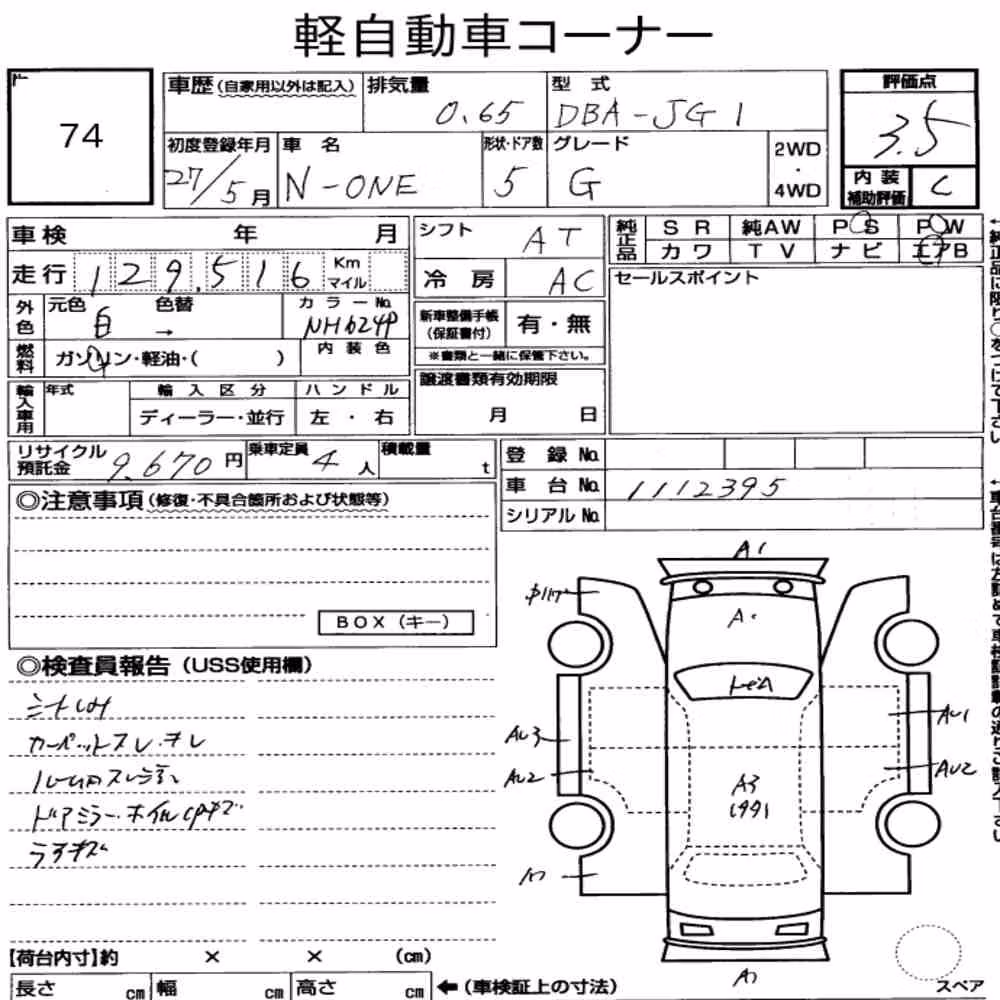 軽自動車コーナー
74
車歴(自家用以外は記入) 排気量 0.65 型式 DBA-JG1 評価点 3.5
初度登録年月 27/5月 車名 N-ONE 形状・ドア数 5 グレード G 2WD・4WD 内装補助評価 C
車検 年 月 シフト AT 純正品 SR 純AW PS PW
カワ TV ナビ エアB
走行 129,516 Km マイル 冷房 AC セールスポイント
外色 元色 白 色替 → カラーNo. NH624P 新車整備手帳(保証書付) 有・無
※書類と一緒に保管下さい。
燃料 ガソリン・軽油・( ) 内装色
譲渡書類有効期限 月 日
輸入車用 年式 輸入区分 ハンドル
ディーラー・並行 左・右
リサイクル預託金 9,670円 乗車定員 4人 積載量 t
登録No.
車台No. 1112395
シリアルNo.
◎注意事項(修復・不具合箇所および状態等)
BOX(キー)
◎検査員報告(USS使用欄)
シートしみ
カーペットスレ.キレ
ドアミラー.ホイル
A1
A
AU3
AU1
AU2
AU2
A3
【荷台内寸】約 × × (cm)
長さ cm 幅 cm 高さ cm ←(車検証上の寸法)
スペア
←純正品に限り○をつけて下さい